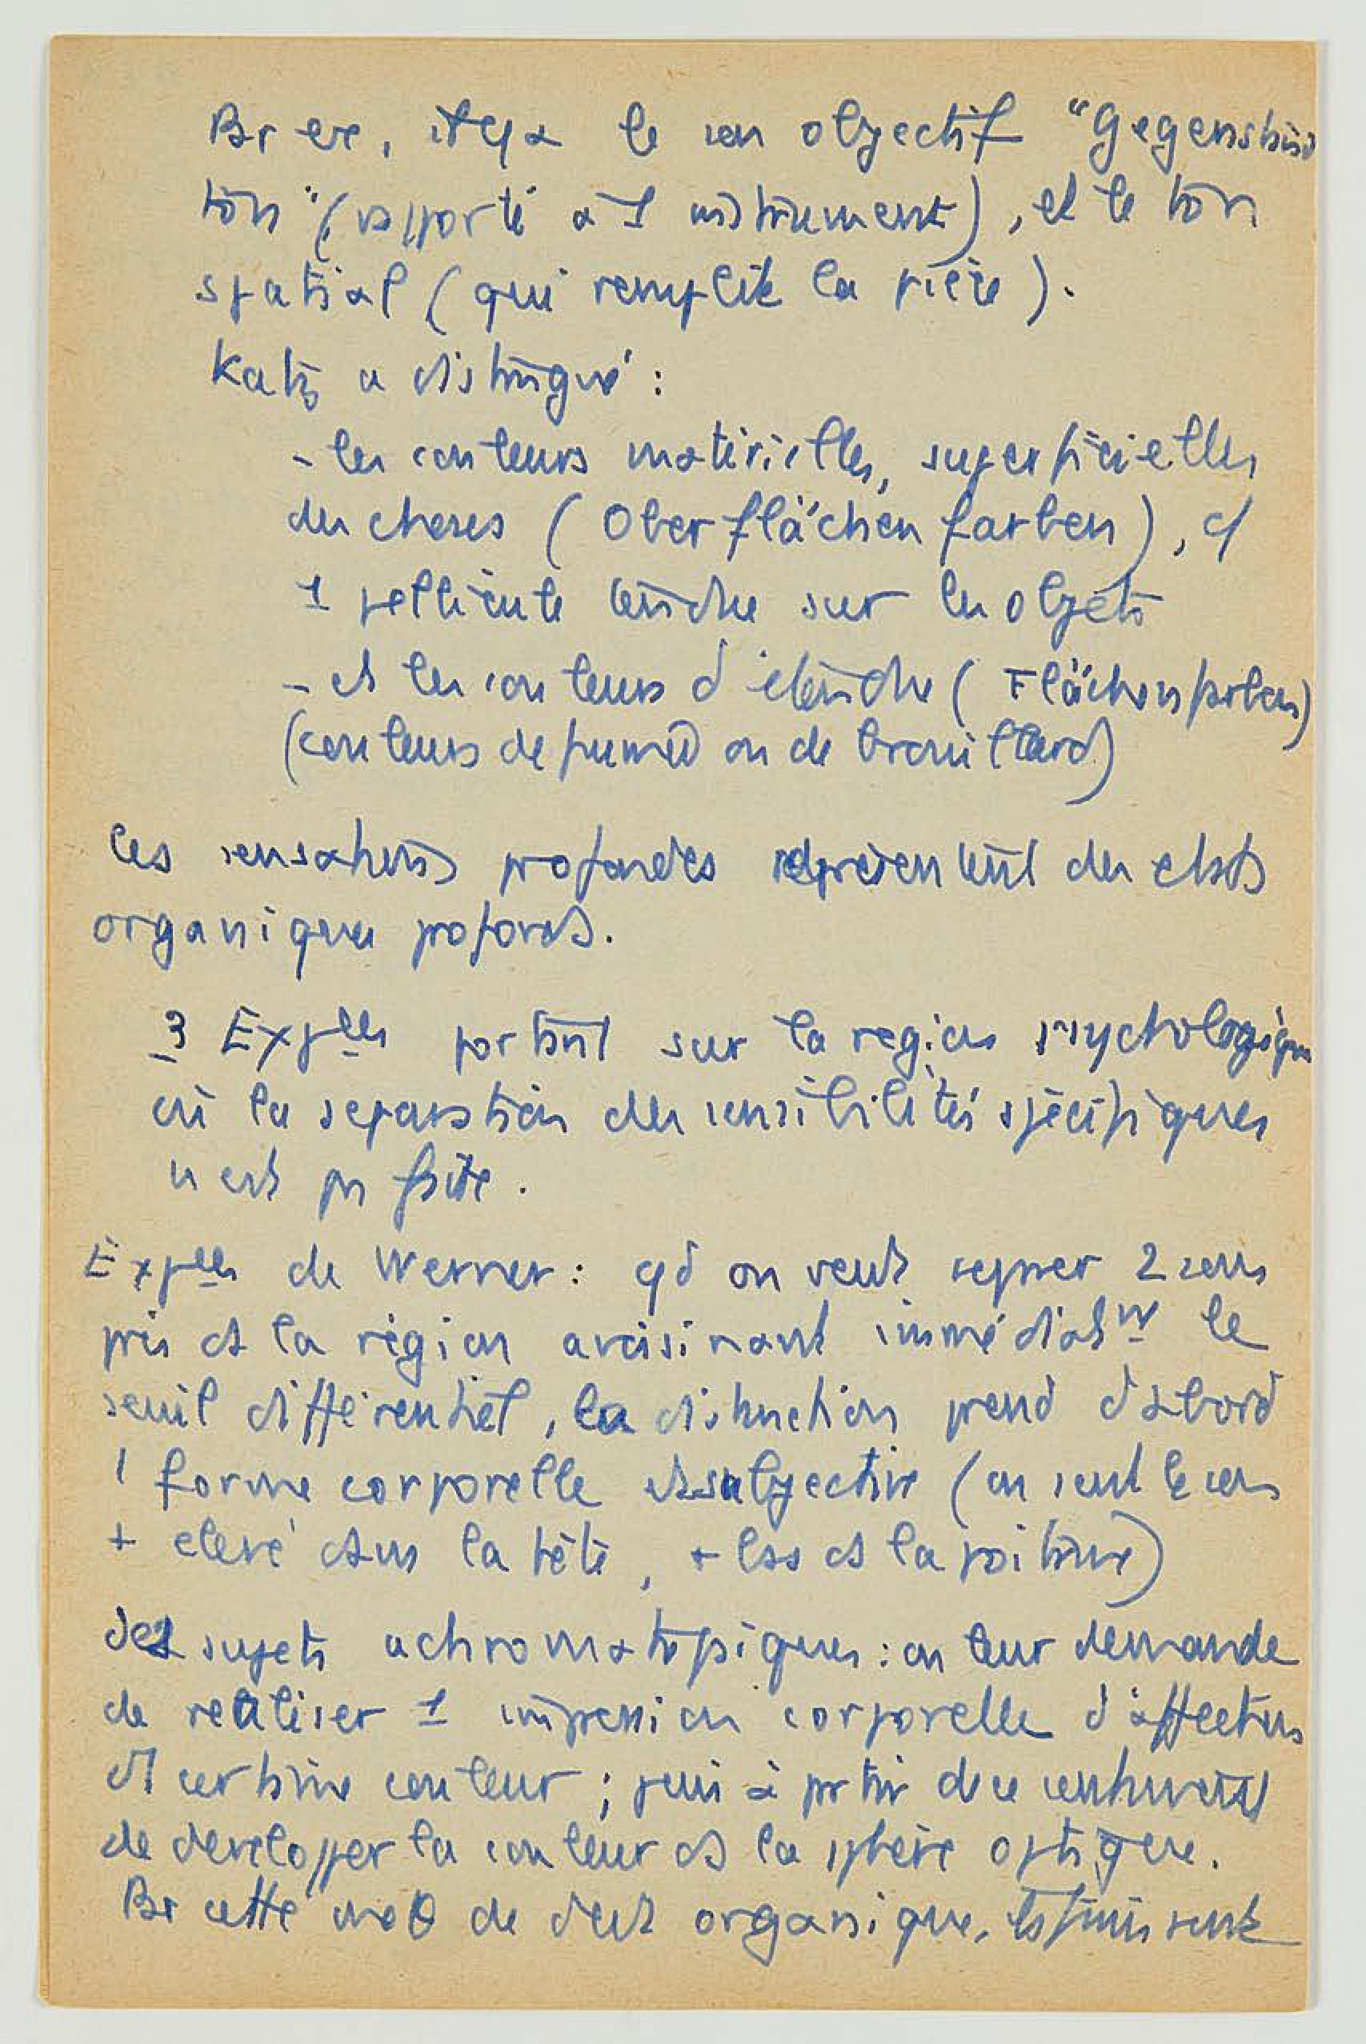 le son objectif "Gegenstand
ton" (rapporté à 1 instrument), et le ton
spatial (qui remplit la pièce).
Katz a distingué :
- les couleurs matérielles, superficielles
des choses (Oberflächenfarben), cf
1 pellicule tendue sur les objets
- et les couleurs d'étendue (Flächenfarben)
(couleurs de fumée ou de brouillard)
Les sensations profondes représentent des états
organiques profonds.
3 Expces portant sur la région psychologique
où la séparation des sensibilités spécifiques
n'est pas faite.
Expces de Werner : qd on veut séparer 2 sons
pris ds la région avoisinant immédiatmt le
seuil différentiel, la distinction prend d'abord
1 forme corporelle subjective (on sent le son
+ élevé dans la tête, + bas ds la poitrine)
sujets achromatopiques : on leur demande
de réaliser 1 impression corporelle d'affection
certaine couleur ; puis à partir de ce sentiment
de développer la couleur ds la sphère optique.
cette de organique, ils finissent